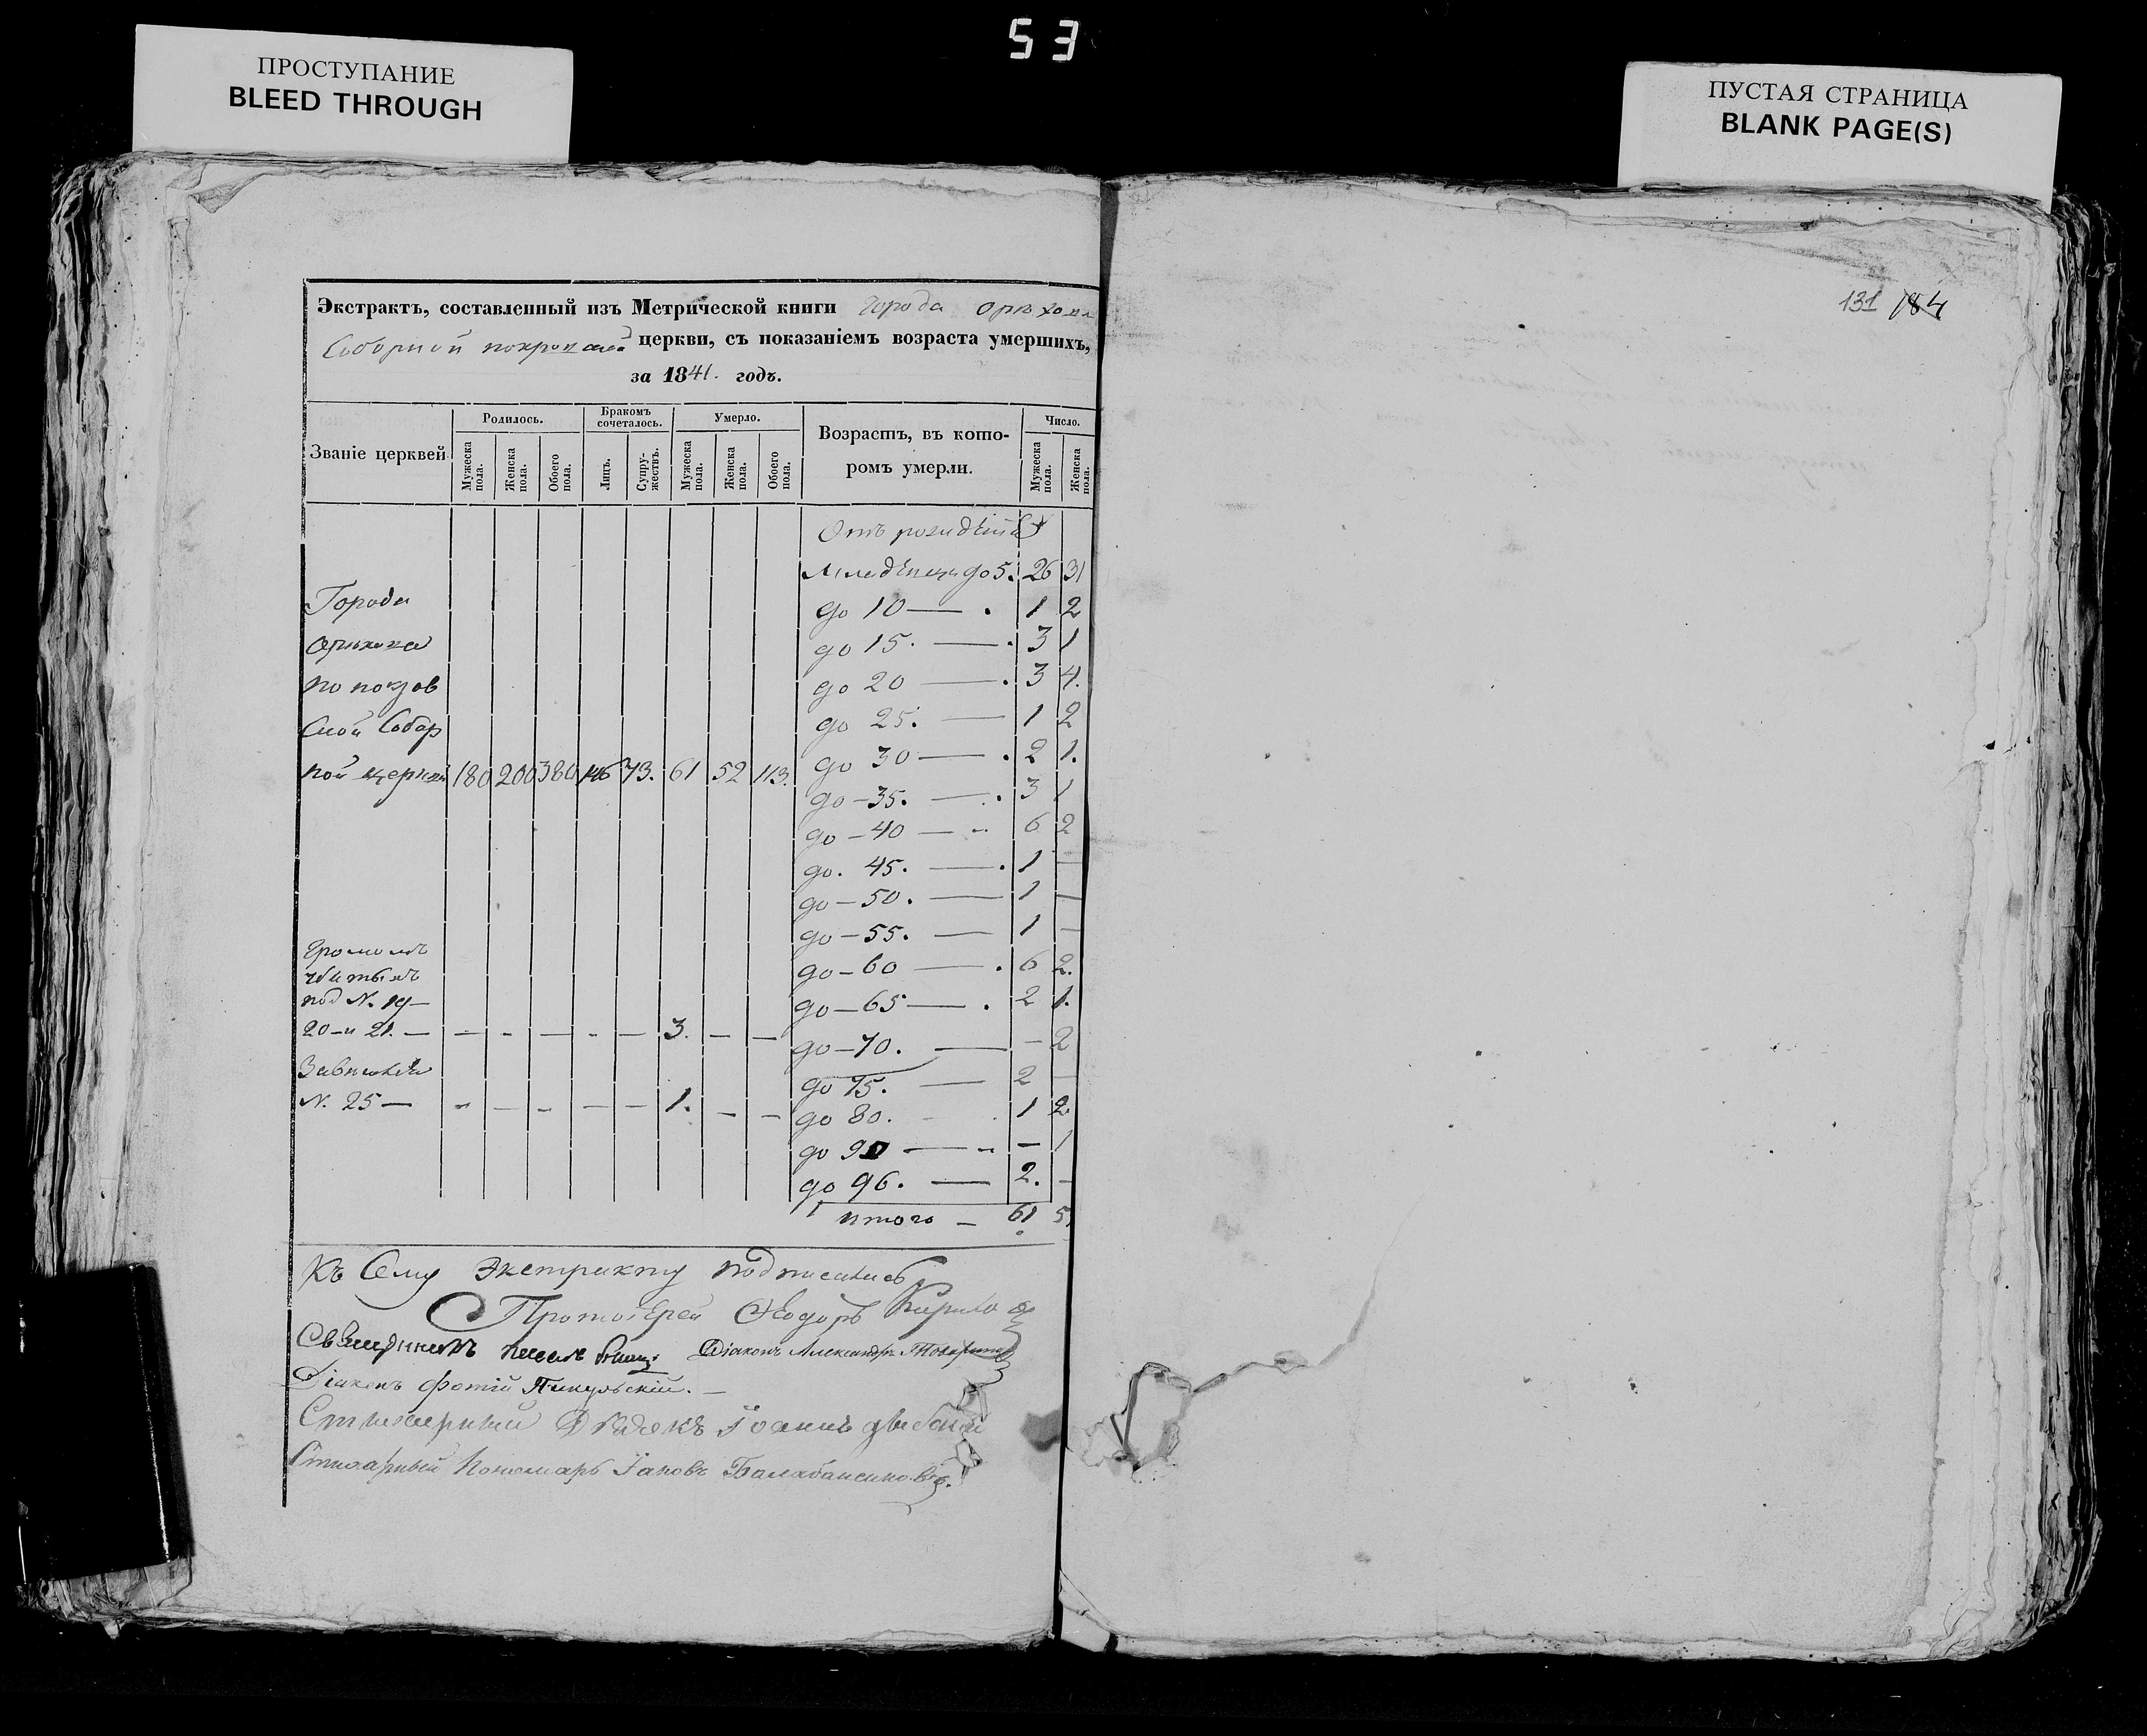 53
ПРОСТУПАНИЕ
BLEED THROUGH
ПУСТАЯ СТРАНИЦА
BLANK PAGE(S)
131 184
Экстрактъ, составленный изъ Метрической книги города
Соборной покровской церкви, съ показаніемъ возраста умершихъ,
за 1841. годъ.
Званіе церквей
Родилось.
Бракомъ сочеталось.
Умерло.
Возрастъ, въ которомъ умерли.
Число.
Мужеска пола.
Женска пола.
Обоего пола.
Лицъ.
Супружествъ.
Мужеска пола.
Женска пола.
Обоего пола.
Мужеска пола.
Женска пола.
Отъ
до 5. 26 31
Города до 10 — 1 2
до 15. — 3 1
по покров до 20 — 3 4.
ской Собор до 25. — 1 2
до 30 — 2 1.
ной церкви 180 200 380 146 73. 61 52 113.
до — 35. — 3 1
до — 40 — 6 2
до. 45. — 1 —
до — 50. — 1 —
до — 55. — 1 —
Громомъ
убитыхъ до — 60 — 6 2.
под N. 19 — до — 65 — 2 1.
20 — и 21. — — — — — — 3. — —
до — 70. — — 2
до 75. — 2 —
N. 25 — — — — — — 1. — — до 80. 1 2.
до 90 — — 1
до 96. — 2. —
итого — 61
Къ Сему Экстракту подписались
Протоіерей Ѳеодоръ
Діаконъ Александръ
Діаконъ Фотій Пикульскій. —
Іоаннъ
Пономарь Іаковъ